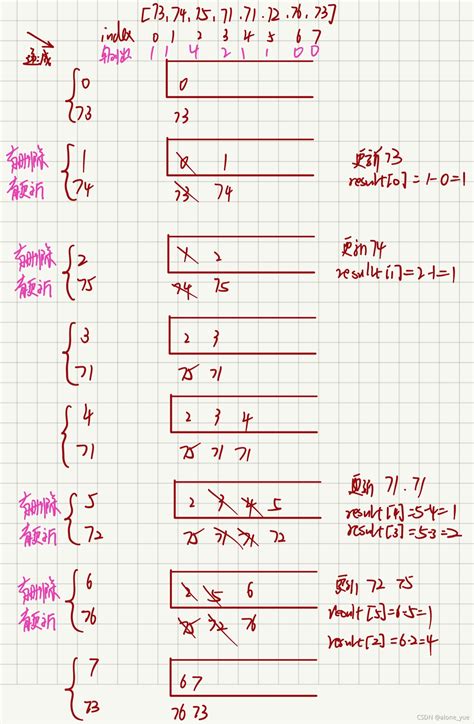 [73,74,75,71,71,72,76,73]
index 0 1 2 3 4 5 6 7
递减 输出 1 1 4 2 1 1 0 0
0 0
73 73
有删除 1 0 1 更新 73
有更新 74 73 74 result[0]=1-0=1
有删除 2 1 2 更新 74
有更新 75 74 75 result[1]=2-1=1
3 2 3
71 75 71
4 2 3 4
71 75 71 71
有删除 5 2 3 4 5 更新 71.71
有更新 72 75 71 71 72 result[4]=5-4=1
result[3]=5-3=2
有删除 6 2 5 6 更新 72 75
有更新 76 75 72 76 result[5]=6-5=1
result[2]=6-2=4
7 6 7
73 76 73
CSDN @alone_yue